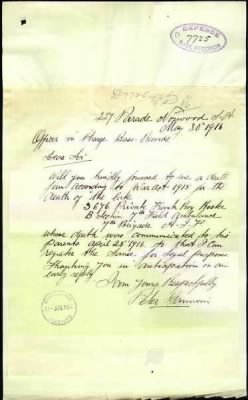 DEFENCE
7725
BASE RECORDS
227 Parade Norwood S.A.
May 30th 1916
Officer in Charge Base Records
Dear Sir
Will you kindly forward to me a death
form according to War Act 1915 in the
death of the late
3676 Private Frank Roy
B Section 7th Field Ambulance
7th Brigade A.I.F.
whose death was communicated to his
parents April 25th 1916. so that I can
register the same for legal purpose
Thanking you in anticipation of an
early reply
I am Yours Respectfully
Peter